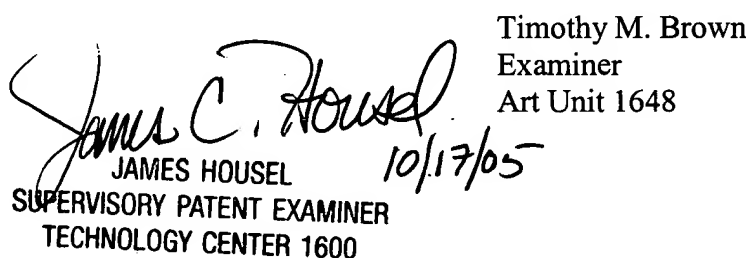 Timothy M. Brown
Examiner
Art Unit 1648
James C. Housel
10/17/05
JAMES HOUSEL
SUPERVISORY PATENT EXAMINER
TECHNOLOGY CENTER 1600